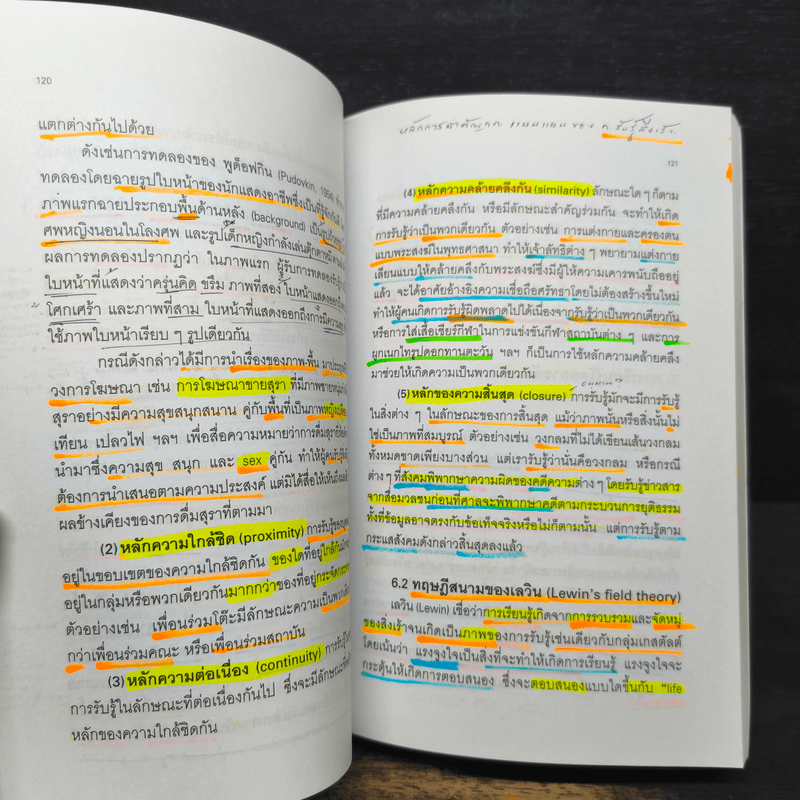 120
แตกต่างกันไปด้วย
ดังเช่นการทดลองของ พูด็อฟกิน (Pudovkin, 1954)
ทดลองโดยฉายรูปใบหน้าของนักแสดงอาชีพซึ่งเป็น
ภาพแรกฉายประกอบพื้นด้านหลัง (background) เป็น
ศพหญิงนอนในโลงศพ และรูปเด็กหญิงกำลังเล่นตุ๊กตา
ผลการทดลองปรากฏว่า ในภาพแรก ผู้รับการทดลอง
ใบหน้าที่แสดงว่าครุ่นคิด ขรึม ภาพที่สอง ใบหน้าแสดงออก
โศกเศร้า และภาพที่สาม ใบหน้าที่แสดงออกถึงการมีความสุข
ใช้ภาพใบหน้าเรียบ ๆ รูปเดียวกัน
กรณีดังกล่าวได้มีการนำเรื่องของภาพ-พื้น มา
วงการโฆษณา เช่น การโฆษณาขายสุรา ที่มีภาพชายหนุ่ม
สุราอย่างมีความสุขสนุกสนาน คู่กับพื้นที่เป็นภาพหญิง
เทียน เปลวไฟ ฯลฯ เพื่อสื่อความหมายว่าการดื่มสุรา
นำมาซึ่งความสุข สนุก และ sex คู่กัน ทำให้ผู้คน
ต้องการนำเสนอตามความประสงค์ แต่มิได้สื่อให้เห็นถึง
ผลข้างเคียงของการดื่มสุราที่ตามมา
(2) หลักความใกล้ชิด (proximity) การรับรู้ของ
อยู่ในขอบเขตของความใกล้ชิดกัน ของใดที่อยู่ใกล้กัน
อยู่ในกลุ่มหรือพวกเดียวกันมากกว่าของที่อยู่กระจัดกระจาย
ตัวอย่างเช่น เพื่อนร่วมโต๊ะมีลักษณะความเป็นพวก
กว่าเพื่อนร่วมคณะ หรือเพื่อนร่วมสถาบัน
(3) หลักความต่อเนื่อง (continuity) การรับรู้
การรับรู้ในลักษณะที่ต่อเนื่องกันไป ซึ่งจะมีลักษณะ
หลักของความใกล้ชิดกัน
หลักการสำคัญ ของ รับรู้สิ่งเร้า
121
(4) หลักความคล้ายคลึงกัน (similarity) ลักษณะใด ๆ ก็ตาม
ที่มีความคล้ายคลึงกัน หรือมีลักษณะสำคัญร่วมกัน จะทำให้เกิด
การรับรู้ว่าเป็นพวกเดียวกัน ตัวอย่างเช่น การแต่งกายและครองตน
แบบพระสงฆ์ในพุทธศาสนา ทำให้เจ้าลัทธิต่าง ๆ พยายามแต่งกาย
เลียนแบบให้คล้ายคลึงกับพระสงฆ์ซึ่งมีผู้ให้ความเคารพนับถืออยู่
แล้ว จะได้อาศัยอ้างอิงความเชื่อถือศรัทธาโดยไม่ต้องสร้างขึ้นใหม่
ทำให้ผู้คนเกิดการรับรู้ผิดพลาดไปได้เนื่องจากรับรู้ว่าเป็นพวกเดียวกัน
หรือการใส่เสื้อเชียร์กีฬาในการแข่งขันกีฬาสถาบันต่าง ๆ และการ
ผูกเนกไทรูปดอกทานตะวัน ฯลฯ ก็เป็นการใช้หลักความคล้ายคลึง
มาช่วยให้เกิดความเป็นพวกเดียวกัน
(5) หลักของความสิ้นสุด (closure) การรับรู้มักจะมีการรับรู้
ในสิ่งต่าง ๆ ในลักษณะของการสิ้นสุด แม้ว่าภาพนั้นหรือสิ่งนั้นไม่
ใช่เป็นภาพที่สมบูรณ์ ตัวอย่างเช่น วงกลมที่ไม่ได้เขียนเส้นวงกลม
ทั้งหมดขาดเพียงบางส่วน แต่เรารับรู้ว่านั่นคือวงกลม หรือกรณี
ต่าง ๆ ที่สังคมพิพากษาความผิดของคดีความต่าง ๆ โดยรับรู้ข่าวสาร
จากสื่อมวลชนก่อนที่ศาลจะพิพากษาคดีตามกระบวนการยุติธรรม
ทั้งที่ข้อมูลอาจตรงกับข้อเท็จจริงหรือไม่ก็ตามนั้น แต่การรับรู้ตาม
กระแสสังคมดังกล่าวสิ้นสุดลงแล้ว
6.2 ทฤษฎีสนามของเลวิน (Lewin's field theory)
เลวิน (Lewin) เชื่อว่าการเรียนรู้เกิดจากการรวบรวมและจัดหมู่
ของสิ่งเร้าจนเกิดเป็นภาพของการรับรู้เช่นเดียวกับกลุ่มเกสตัลต์
โดยเน้นว่า แรงจูงใจเป็นสิ่งที่จะทำให้เกิดการเรียนรู้ แรงจูงใจจะ
กระตุ้นให้เกิดการตอบสนอง ซึ่งจะตอบสนองแบบใดขึ้นกับ "life